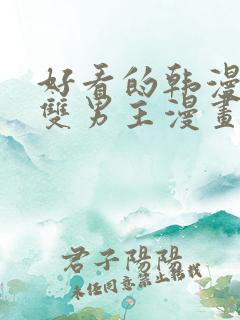 好看的韩漫
雙男主漫畫
君子陽陽
未经同意禁止转载